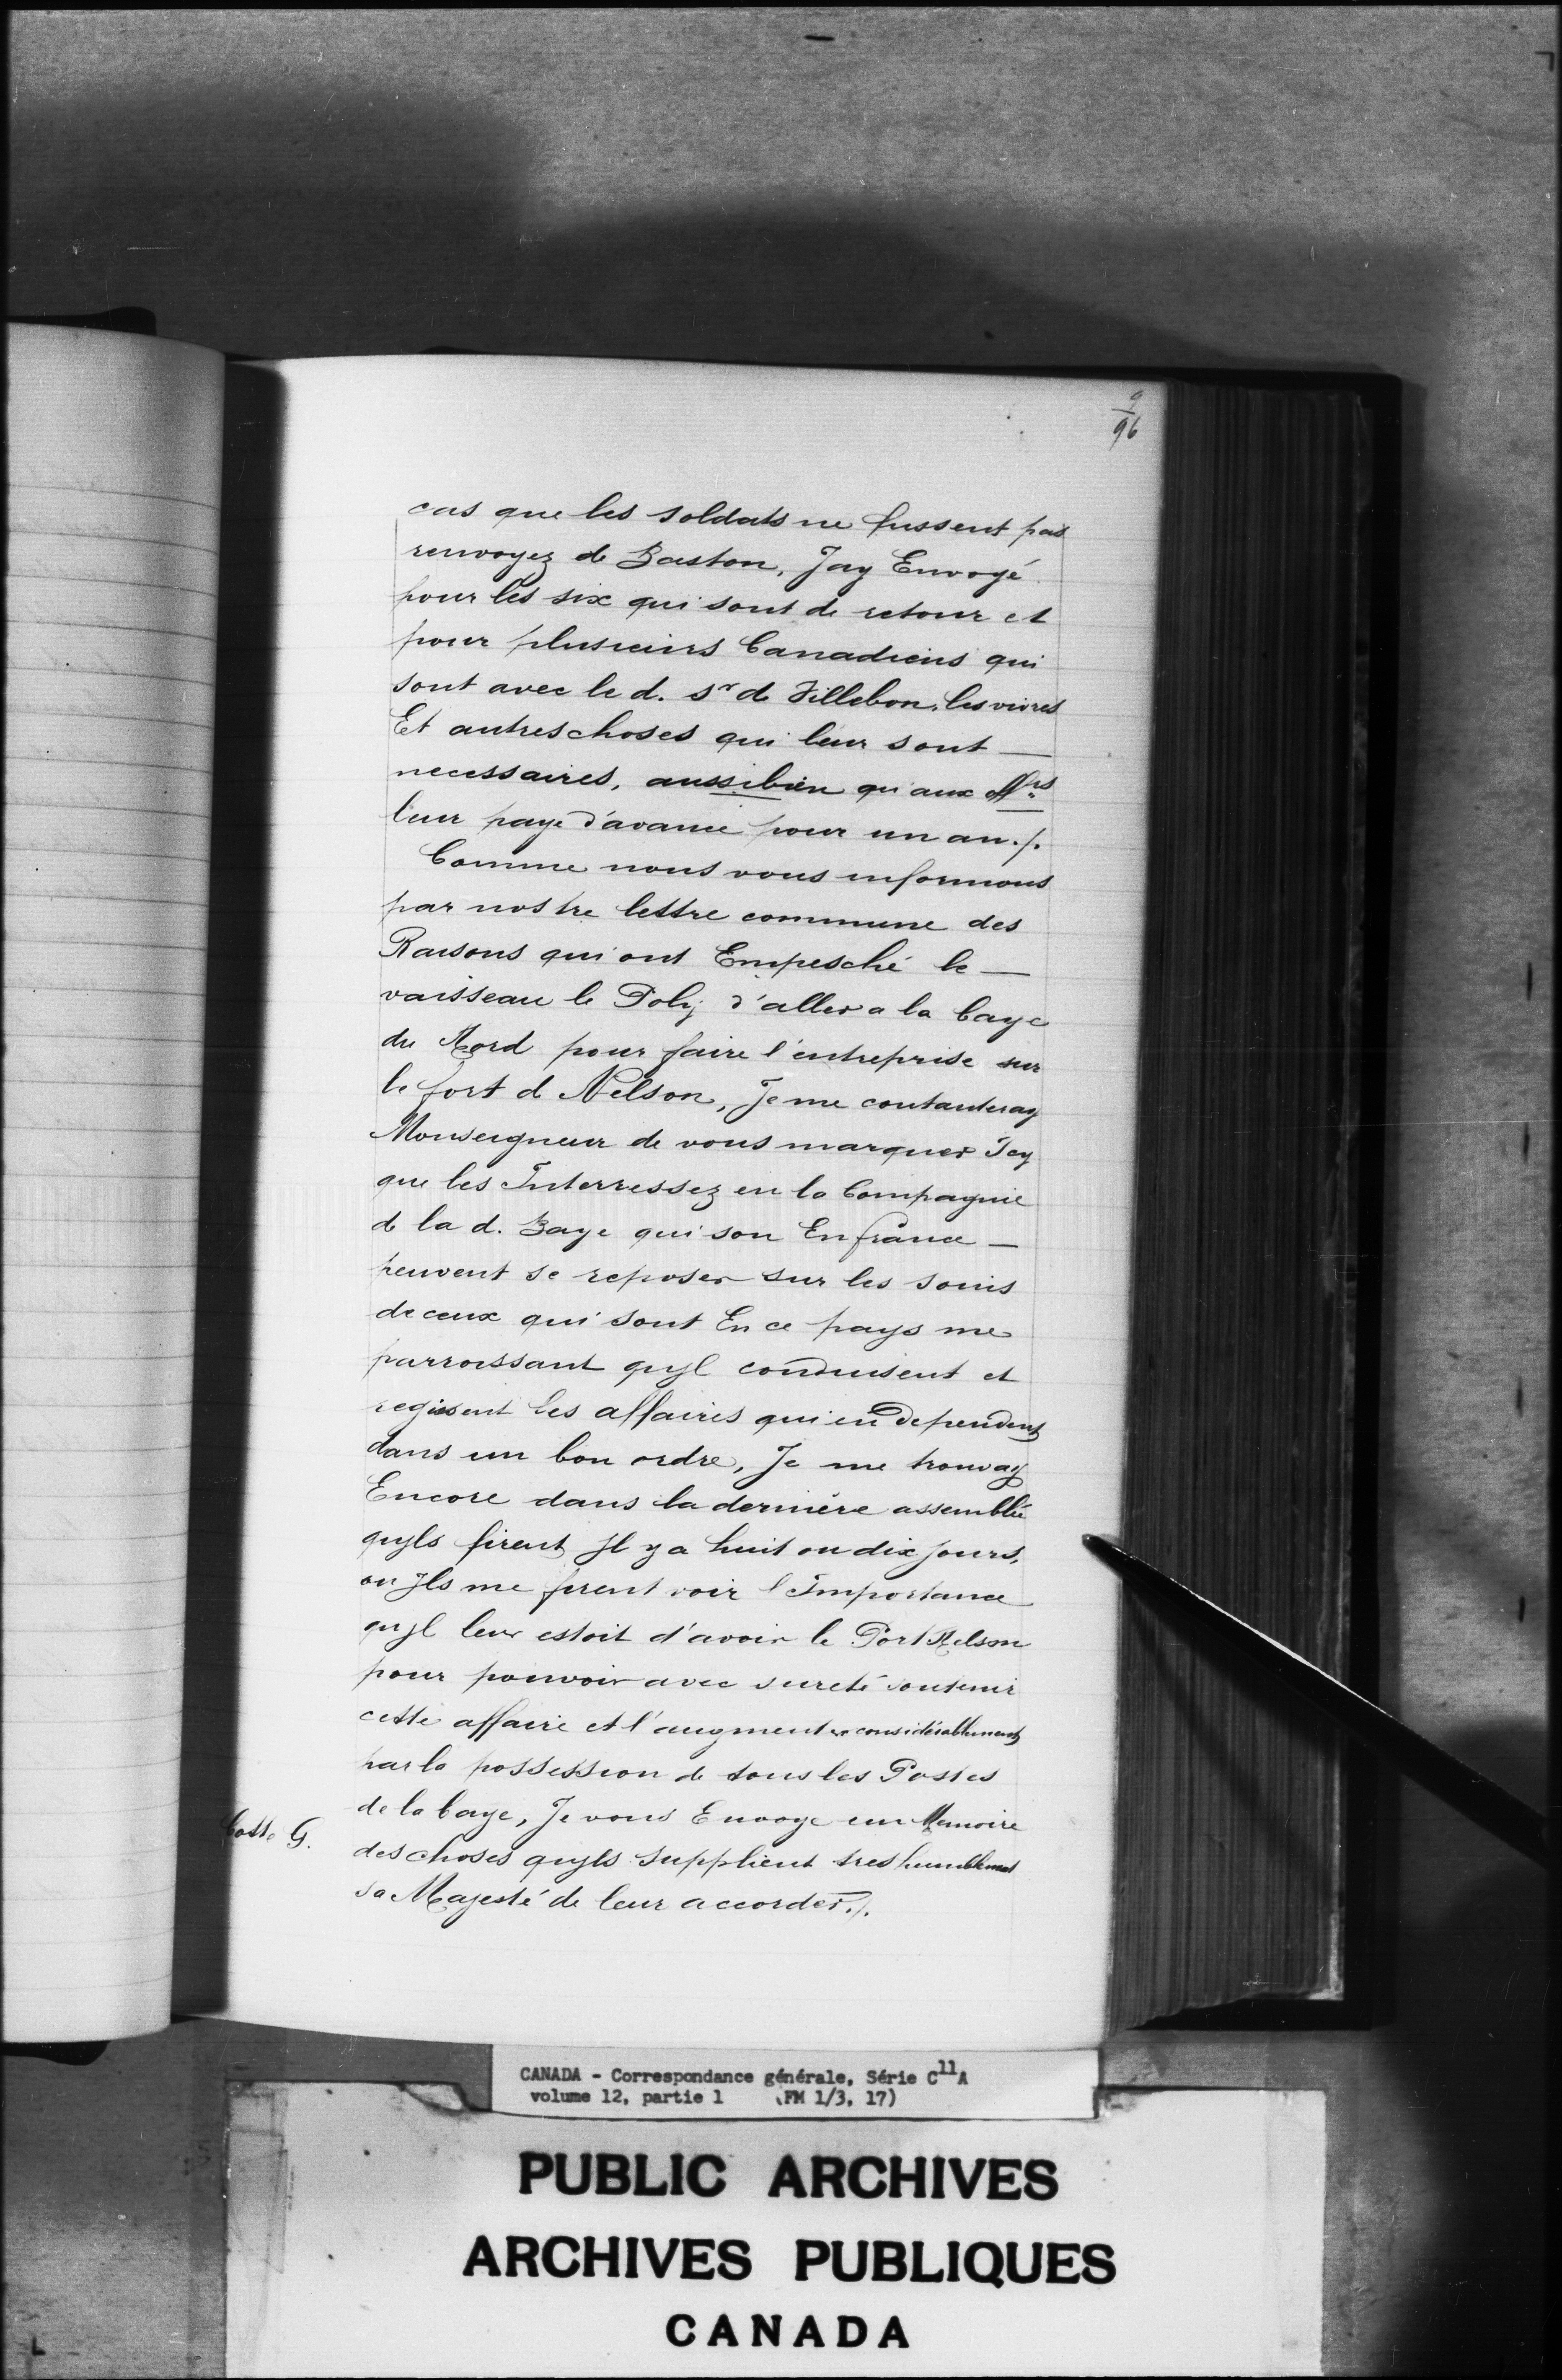 9
96
cas que les soldats ne fussent pas
renvoyez de Baston, Jay Envoyé
pour les six qui sont de retour et
pour plusieurs Canadiens qui
sont avec le d. sr de Villebon, les vivres
Et autres choses qui leur sont —
necessaires, aussi bien qu'aux Mrs
leur paye d'avance pour un an./.
Comme nous vous informons
par nostre lettre commune des
Raisons qui ont Empesché le —
vaisseau le Poly d'aller a la baye
du Nord pour faire l'entreprise sur
le fort d Nelson, Je me contanteray
Monseigneur de vous marquer Icy
que les Interressez en la Compagnie
de la d. Baye qui son En france —
peuvent se reposer sur les soins
de ceux qui sont En ce pays me
parroissant qujl conduisent et
regissent les affaires qui en dependent
dans un bon ordre, Je me trouvay
Encore dans la derniére assemblée
qujls firent Jl y a huit ou dix jours,
ou Jls me firent voir l'Importance
qujl leur estoit d'avoir le Port Nelson
pour pouvoir avec sureté soutenir
cette affaire et l'augmenter considérablement
par la possession de tous les Postes
de la baye, Je vous Envoye un Memoire
Cotte G.
des choses qujls supplient tres humblement
sa Majesté de leur accorder./.
CANADA - Correspondance générale, Série C11A
volume 12, partie 1 (FM 1/3, 17)
PUBLIC ARCHIVES
ARCHIVES PUBLIQUES
CANADA